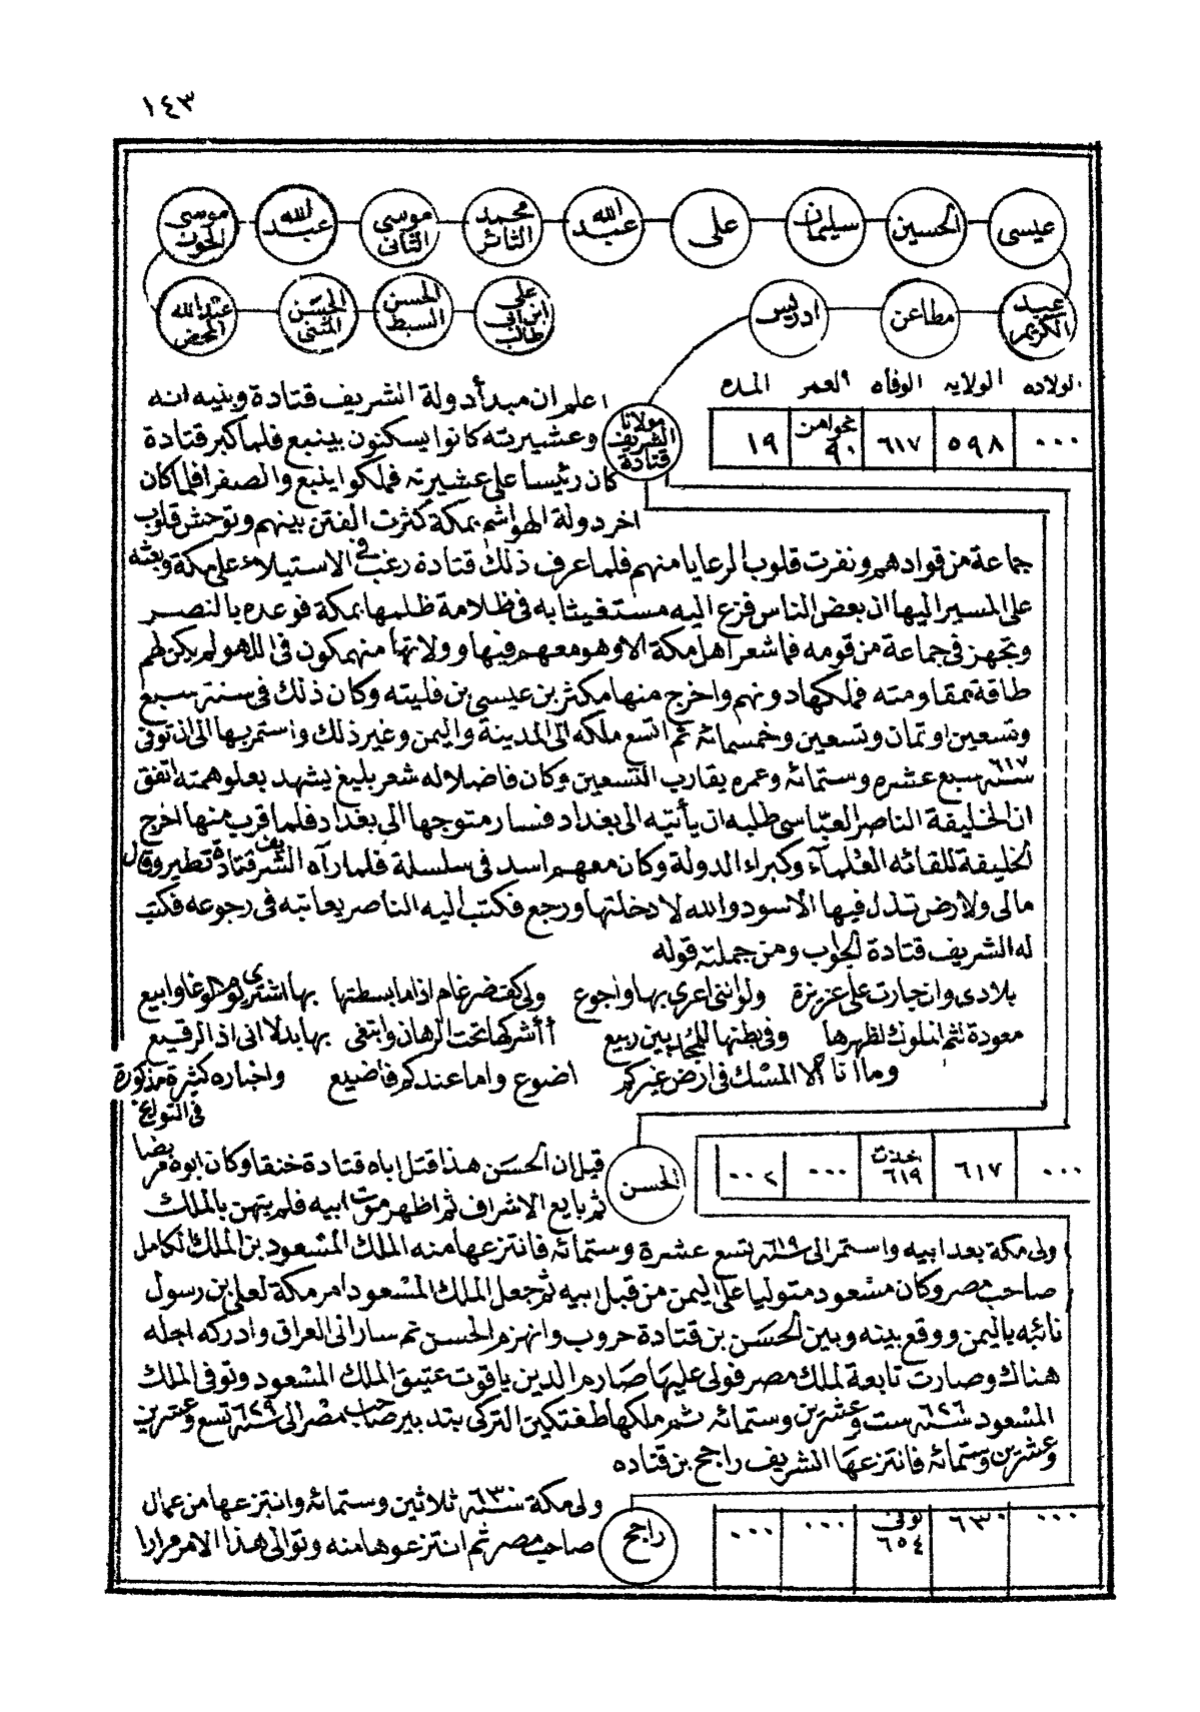 ١٤٣
عيسى الحسين سليمان على عبد الله محمد الثائر موسى الثانى عبد الله موسى الجون
عبد الكريم مطاعن ادريس على ابن ابى طالب الحسن السبط الحسن المثنى عبد الله المحض
الولاده الولايه الوفاه العمر المده
٠٠٠ ٥٩٨ ٦١٧ نحوا من ٩٠ ١٩
مولانا الشريف قتادة
اعلم ان مبدأ دولة الشريف قتادة وبنيه انه
وعشيرته كانوا يسكنون بينبع فلما كبر قتادة
كان رئيسا على عشيرته فملكوا ينبع والصفرا فلما كان
اخر دولة الهواشم بمكة كثرت الفتن بينهم وتوحش قلوب
جماعة من قوادهم ونفرت قلوب الرعايا منهم فلما عرف ذلك قتادة رغب فى الاستيلاء على مكة وبعثه
على المسير اليها ان بعض الناس فزع اليه مستغيثا به فى ظلامة ظلمها بمكة فوعده بالنصر
وتجهز فى جماعة من قومه فما شعر اهل مكة الا وهو معهم فيها وولاتها منهمكون فى اللهو لم يكن لهم
طاقة بمقاومته فملكها دونهم واخرج منها مكثر بن عيسى بن فليته وكان ذلك فى سنة سبع
وتسعين او ثمان وتسعين وخمسمائة ثم اتسع ملكه الى المدينة واليمن وغير ذلك واستمر بها الى ان توفى
سنة ٦١٧ سبع عشره وستمائة وعمره يقارب التسعين وكان فاضلا له شعر بليغ يشهد بعلو همته اتفق
ان الخليفة الناصر العباسى طلبه ان يأتيه الى بغداد فسار متوجها الى بغداد فلما قرب منها اخرج
الخليفة للقائه العلمآء وكبراء الدولة وكان معهم اسد فى سلسلة فلما رآه الشريف قتادة تطير وقال
مالى ولارض تذل فيها الأسود والله لا دخلتها ورجع فكتب اليه الناصر يعاتبه فى رجوعه فكتب
له الشريف قتادة الجواب ومن جملته قوله
بلادى وان جارت على عزيزة ولو اننى اعرى بها واجوع ولى كف ضرغام اذا ما بسطتها بها اشترى يوم الوغا وابيع
معودة لثم الملوك لظهرها وفى بطنها للمجدبين ربيع أأشركها تحت الرهان وابتغى بها بدلا انى اذا لرقيع
وما انا الا المسك فى ارض غيركم اضوع واما عندكم فاضيع واخباره كثيرة مذكورة
فى التواريخ
٠٠٠ ٦١٧ ٦١٩ ٠٠٠ ٠٠٢
الحسن
قيل ان الحسن هذا قتل اباه قتادة خنقا وكان ابوه مريضا
ثم بايع الاشراف ثم اظهر موت ابيه فلم يتهن بالملك
ولى مكة بعد ابيه واستمر الى سنة ٦١٩ تسع عشرة وستمائة فانتزعها منه الملك المسعود بن الملك الكامل
صاحب مصر وكان مسعود متوليا على اليمن من قبل ابيه ثم جعل الملك المسعود امر مكة لعلى بن رسول
نائبه باليمن ووقع بينه وبين الحسن بن قتادة حروب وانهزم الحسن ثم سار الى العراق وادركه اجله
هناك وصارت تابعة لملك مصر فولى عليها صارم الدين ياقوت عتيق الملك المسعود وتوفى الملك
المسعود سنة ٦٢٦ ست وعشرين وستمائة ثم ملكها طغتكين التركى بتدبير صاحب مصر الى سنة ٦٢٩ تسع وعشرين
وعشرين وستمائة فانتزعها الشريف راجح بن قتاده
٠٠٠ ٦٣٠ توفى ٦٥٤ ٠٠٠ ٠٠٠
راجح
ولى مكة سنة ٦٣٠ ثلاثين وستمائة وانتزعها من عمال
صاحب مصر ثم انتزعوها منه وتوالى هذا الامر مرارا